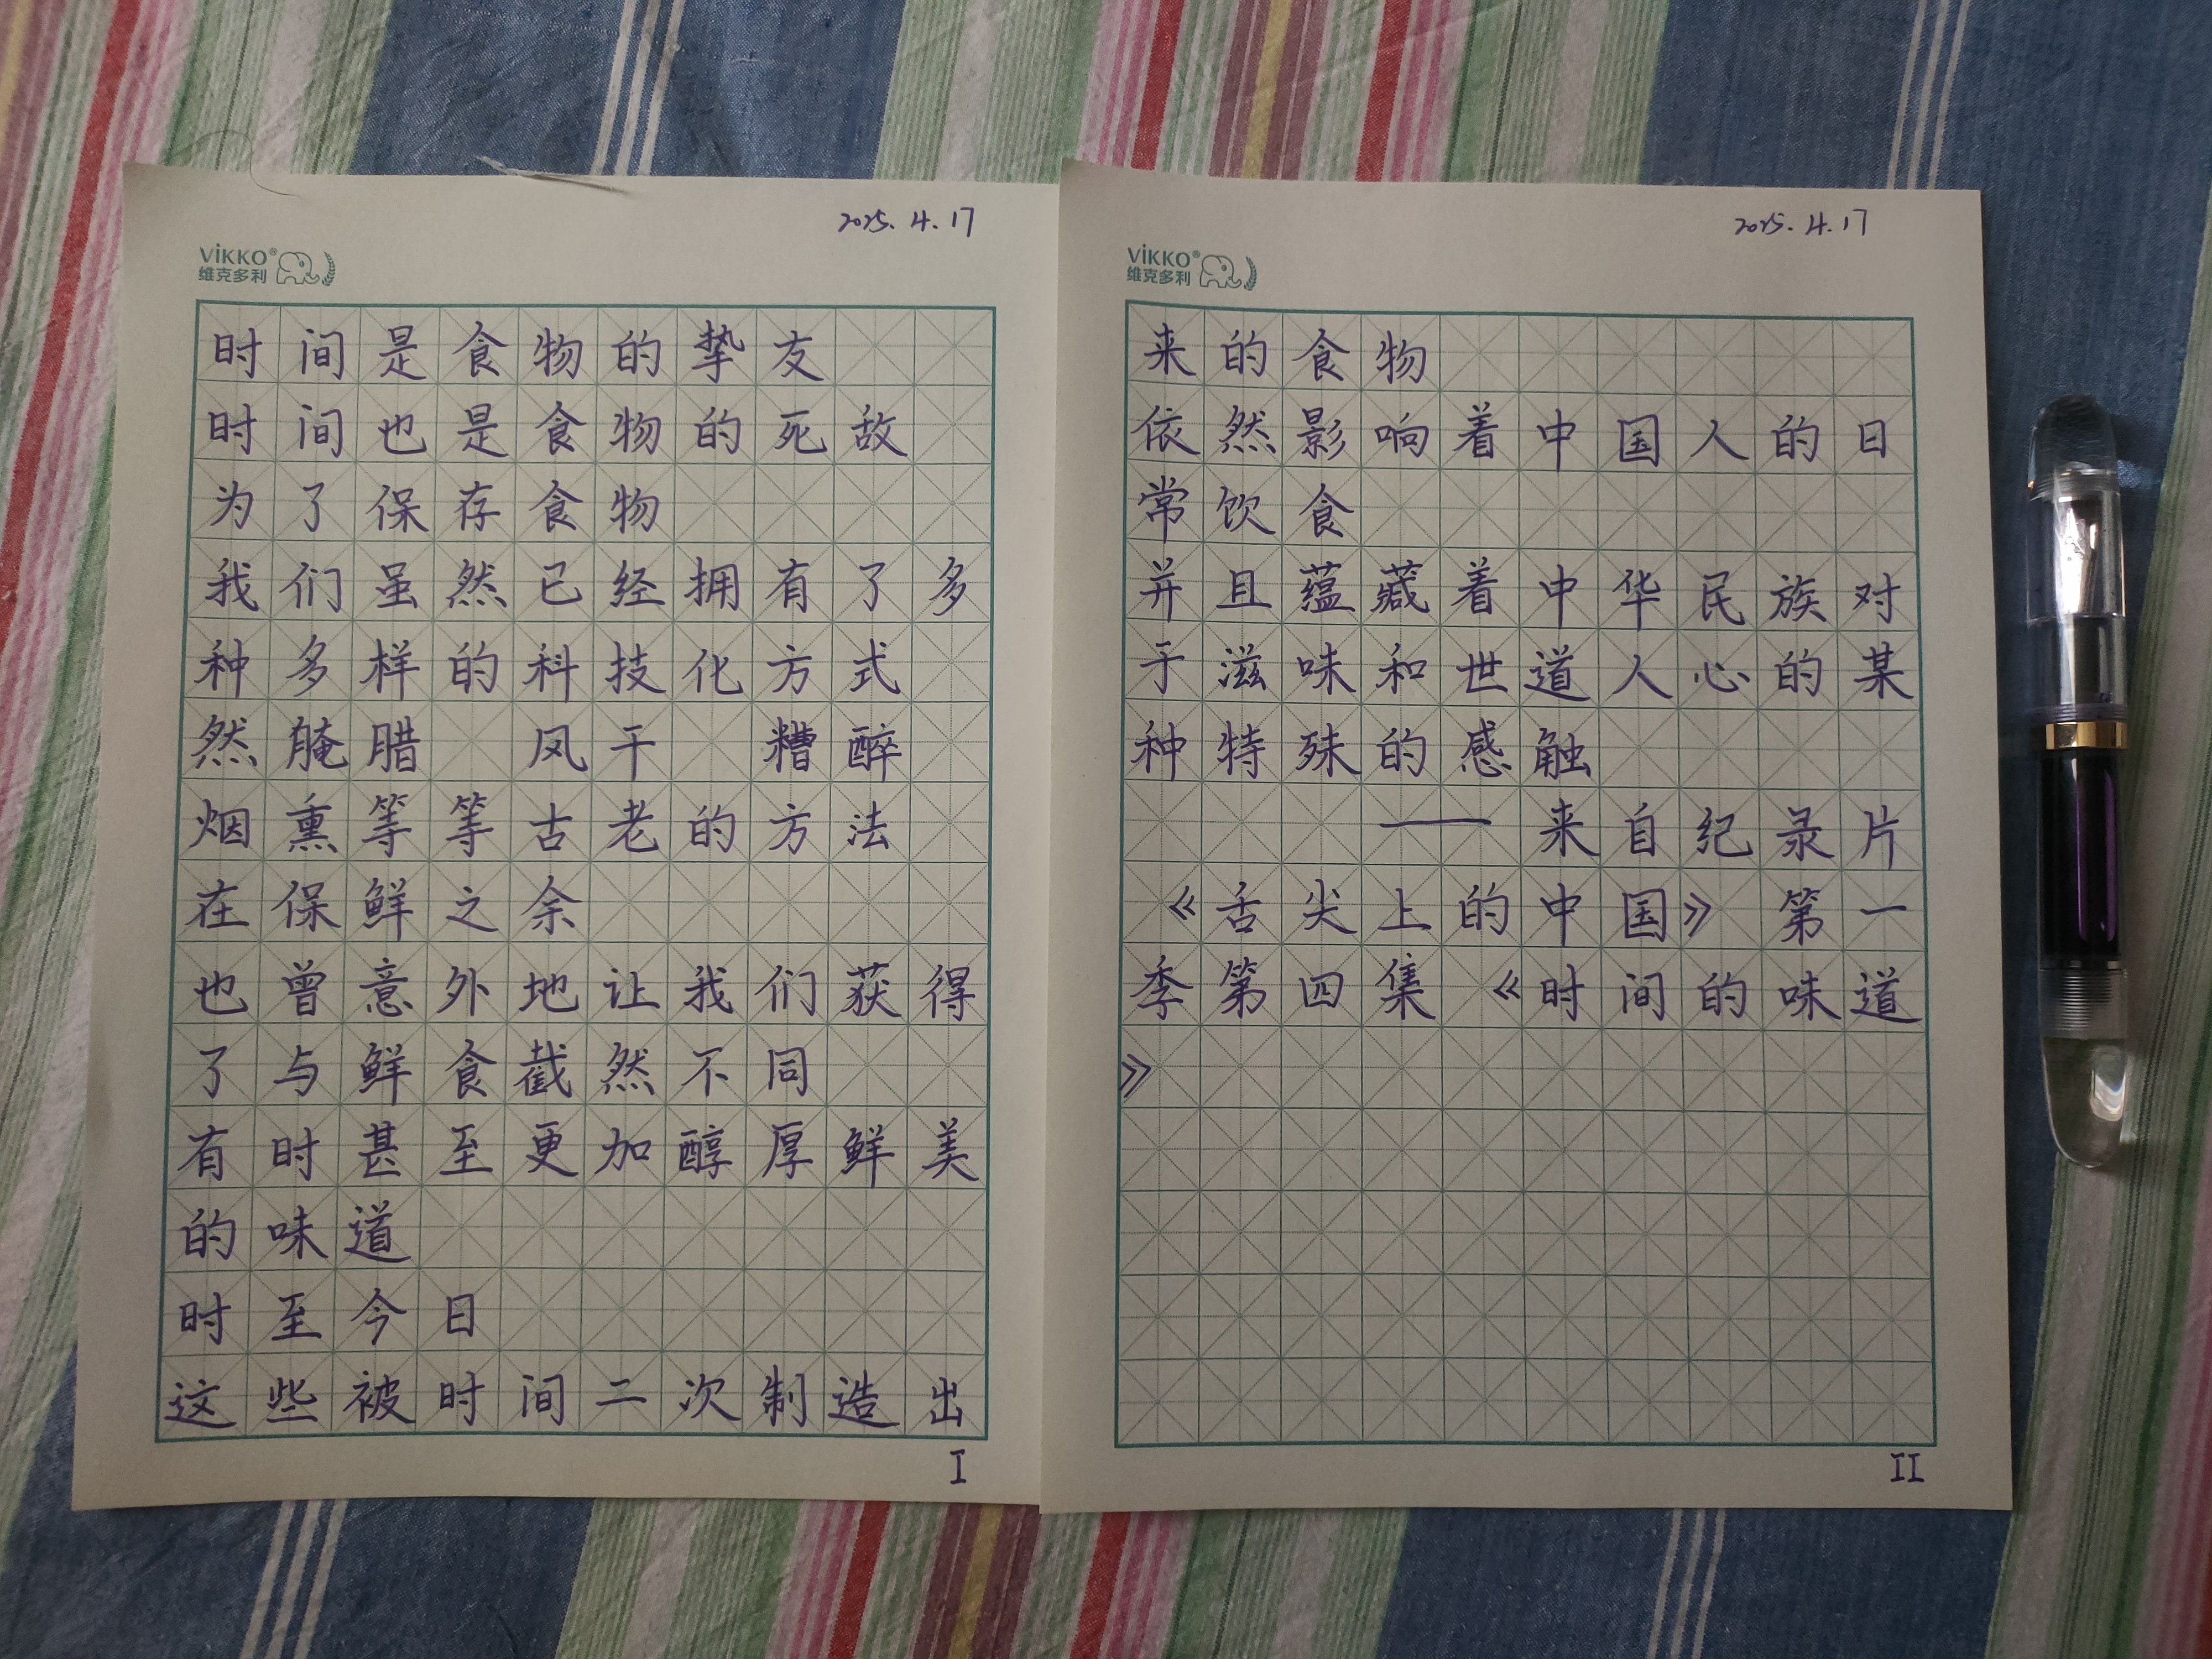 2025.4.17
ViKKO®
维克多利
时间是食物的挚友
时间也是食物的死敌
为了保存食物
我们虽然已经拥有了多
种多样的科技化方式
然腌腊 风干 糟醉
烟熏等等古老的方法
在保鲜之余
也曾意外地让我们获得
了与鲜食截然不同
有时甚至更加醇厚鲜美
的味道
时至今日
这些被时间二次制造出
I
2025.4.17
ViKKO®
维克多利
来的食物
依然影响着中国人的日
常饮食
并且蕴藏着中华民族对
于滋味和世道人心的某
种特殊的感触
——来自纪录片
《舌尖上的中国》 第一
季第四集 《时间的味道
》
II